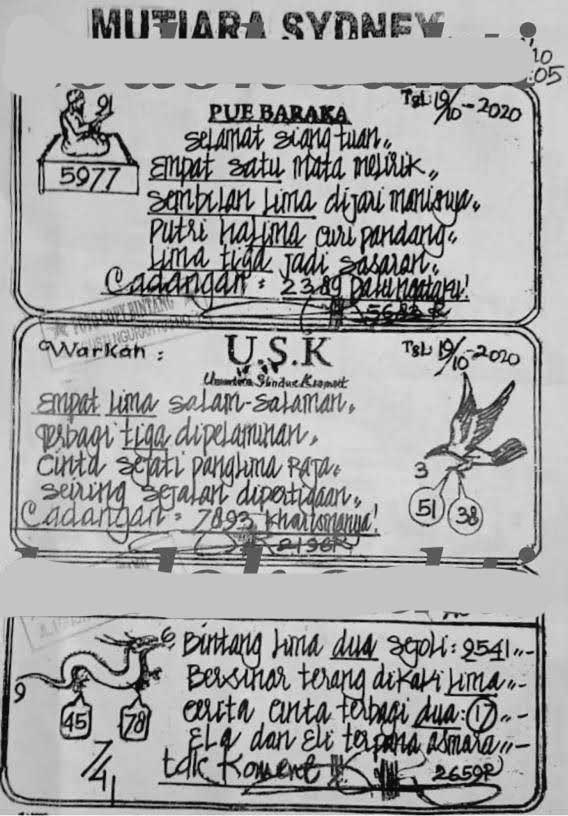 MUTIARA SYDNEY
10
05
PUE BARAKA
Tgl: 19/10-2020
91
5977
Selamat siang tuan,,
Empat satu mata melirik,,
Sembilan lima dijari manisnya,,
Putri halima curi pandang,,
Lima tiga jadi sasaran,,
Cadangan : 2389
5683 R
FOTO COPY BINTANG
Warkah :
U.S.K
Tgl: 19/10-2020
Empat lima salam-salaman,,
Terbagi tiga dipelaminan,,
Cinta sejati panglima Raja,,
Seiring sejalan dipertigaan,,
Cadangan = 7893 Khartomanya!
2196R
3
51
38
6
9
45
78
7/41
Bintang lima dua sejoli : 2541,,-
Bersinar terang dikaki lima,,-
Cerita cinta terbagi dua : 17,,-
Ela dan Eli terpana asmara,,-
tdk Koment
2659R